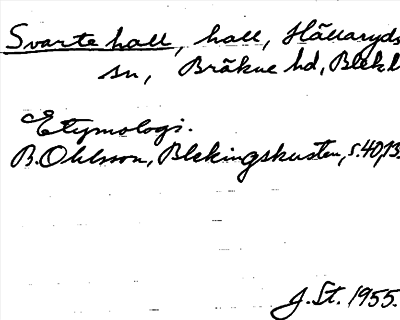 Svarte hall, hall, Hällaryds
sn, Bräkne hd, Blekl
Etymologi.
B. Ohlsson, Blekingskusten, s. 40, 13.
J. St. 1955.